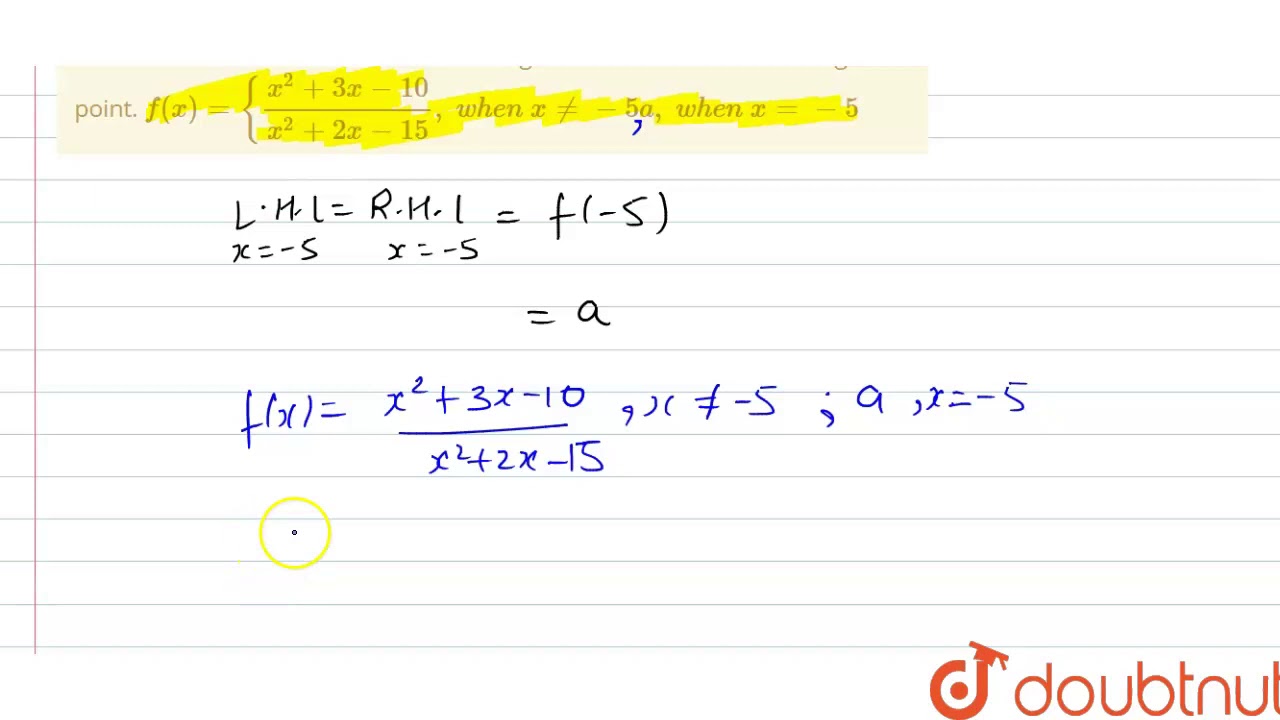 point. f(x) = { x² + 3x − 10 / x² + 2x − 15, when x ≠ −5a, when x = −5
,
L.H.L = R.H.L = f(-5)
x=-5 x=-5
= a
f(x) = x²+3x-10 / x²+2x-15 , x ≠ -5 ; a , x=-5
doubtnut